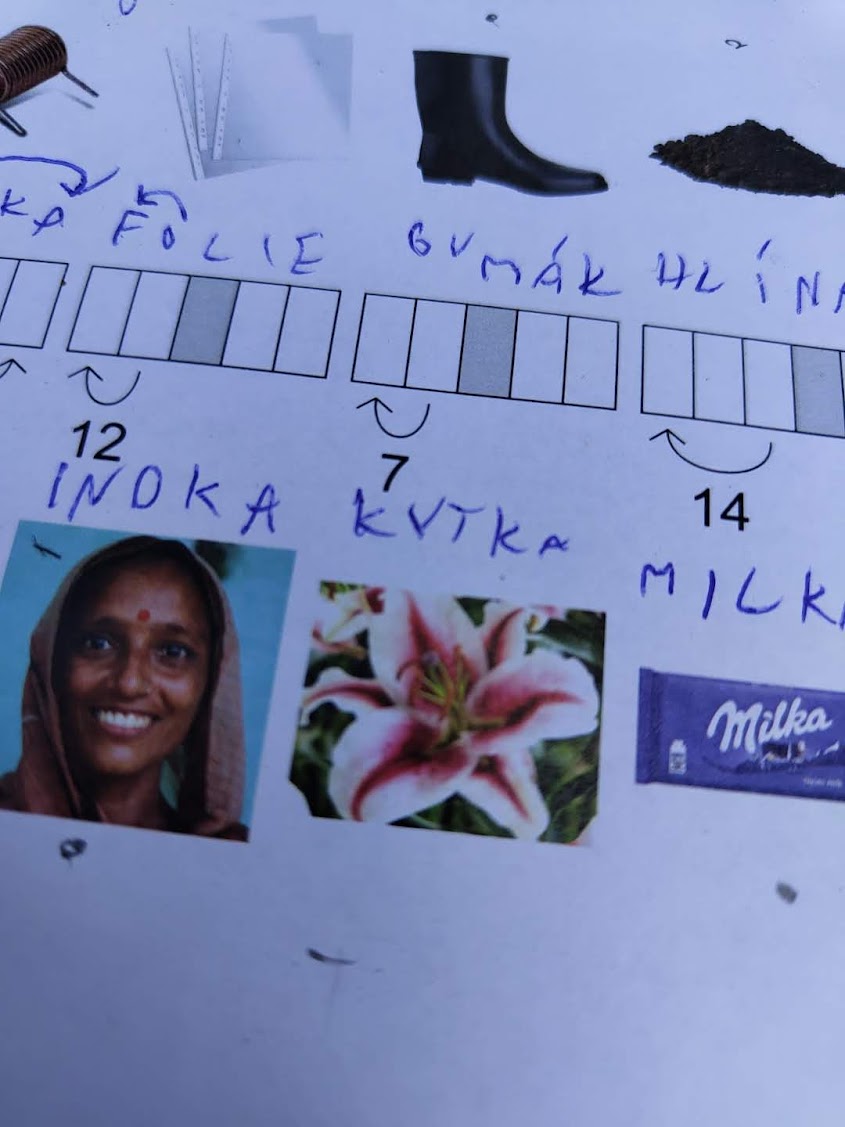 KA FOLIE GUMÁK HLÍNA
12 7 14
INDKA KVTKA MILKA
Milka